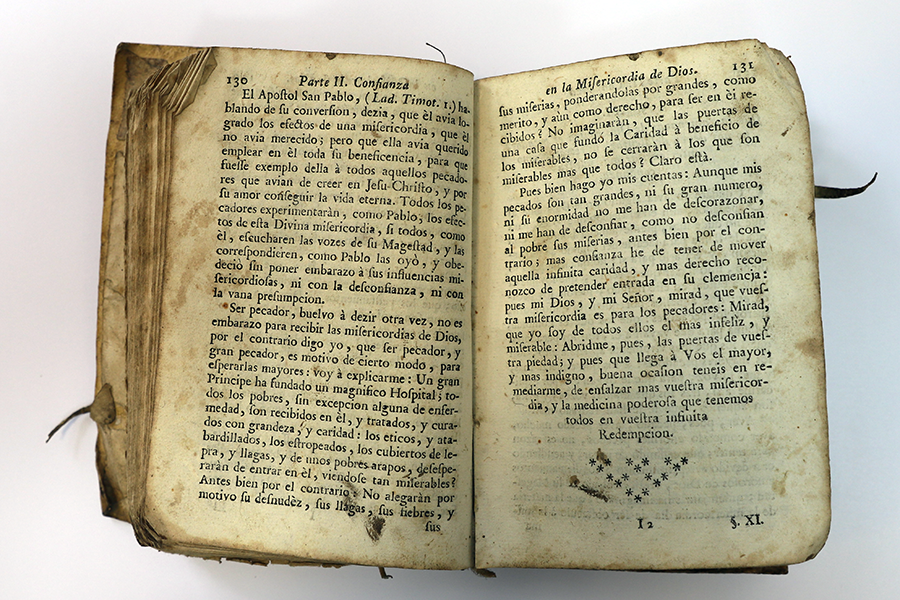 130 Parte II. Confianza
El Apoſtol San Pablo, (Lad. Timot. 1.) ha-
blando de ſu converſion, dezia, que èl avia lo-
grado los efectos de una miſericordia, que èl
no avia merecido; pero que ella avia querido
emplear en èl toda ſu beneficencia, para que
fueſſe exemplo della à todos aquellos pecado-
res que avian de creer en Jeſu-Chriſto, y por
ſu amor conſeguir la vida eterna. Todos los pe-
cadores experimentaràn, como Pablo, los efec-
tos de eſta Divina miſericordia, ſi todos, como
èl, eſcucharen las vozes de ſu Mageſtad, y las
correſpondieren, como Pablo las oyò, y obe-
deciò ſin poner embarazo à sus influencias mi-
ſericordioſas, ni con la deſconfianza, ni con
la vana preſumpcion.
Ser pecador, buelvo à dezir otra vez, no es
embarazo para recibir las miſericordias de Dios,
por el contrario digo yo, que ſer pecador, y
gran pecador, es motivo de cierto modo, para
eſperarlas mayores: voy à explicarme: Un gran
Principe ha fundado un magnifico Hoſpital; to-
dos los pobres, ſin excepcion alguna de enfer-
medad, ſon recibidos en èl, y tratados, y cura-
dos con grandeza, y caridad: los eticos, y ata-
bardillados, los eſtropeados, los cubiertos de le-
pra, y llagas, y de unos pobres arapos, deſeſpe-
raràn de entrar en èl, viendoſe tan miſerables?
Antes bien por el contrario: No alegaràn por
motivo ſu deſnudèz, ſus llagas, ſus fiebres, y
ſus
en la Miſericordia de Dios. 131
ſus miſerias, ponderandolas por grandes, como
merito, y aun como derecho, para ſer en èl re-
cibidos? No imaginaràn, que las puertas de
una caſa que fundò la Caridad à beneficio de
los miſerables, no ſe cerraràn à los que ſon
miſerables mas que todos? Claro eſtà.
Pues bien hago yo mis cuentas: Aunque mis
pecados ſon tan grandes, ni ſu gran numero,
ni ſu enormidad no me han de deſcorazonar,
ni me han de deſconfiar, como no deſconfian
al pobre ſus miſerias, antes bien por el con-
trario; mas confianza he de tener de mover
aquella infinita caridad, y mas derecho reco-
nozco de pretender entrada en ſu clemencia:
pues mi Dios, y mi Señor, mirad, que vueſ-
tra miſericordia es para los pecadores: Mirad,
que yo ſoy de todos ellos el mas infelìz, y
miſerable: Abridme, pues, las puertas de vueſ-
tra piedad; y pues que llega à Vos el mayor,
y mas indigno, buena ocaſion teneis en re-
mediarme, de enſalzar mas vueſtra miſericor-
dia, y la medicina poderoſa que tenemos
todos en vueſtra infinita
Redempcion.
I2 §. XI.